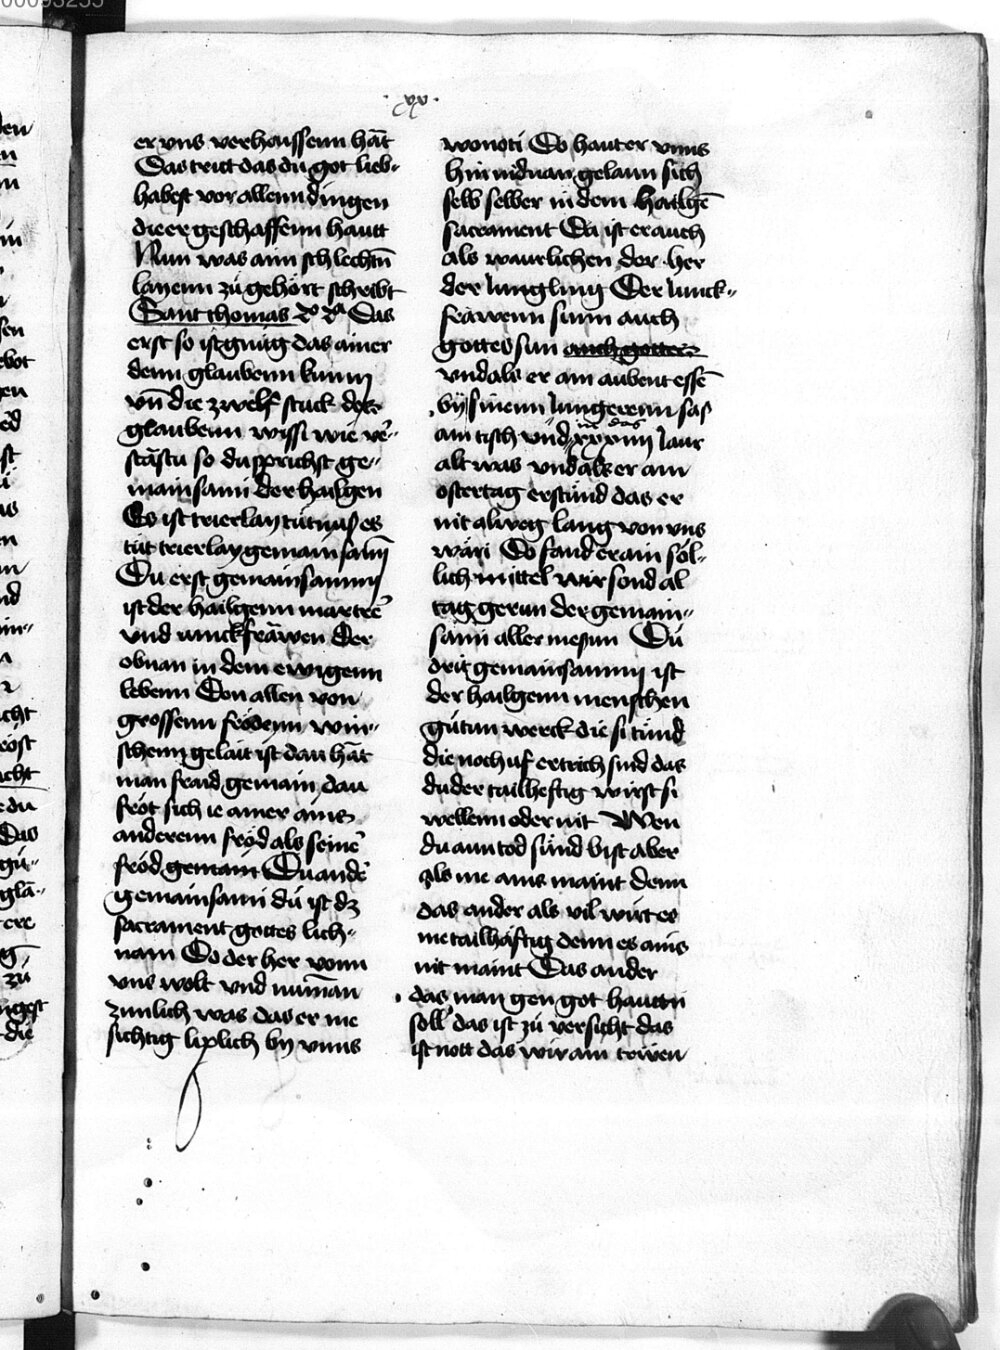 xv
er vns verhaissenn hāt
Das trit das du got lieb-
habest vor allenn dingen
die er geschaffenn hautt
Nun was aim schlechtn̄
layenn zů gehört schribt
Sant thomas Das
erst so ist gnůg das ainer
denn glaubenn kunn
vn̄ die zwelf stuck des
glaubenn wissi wie ver-
stāstu so du sprichst ge-
mainsami der hailgen
Es ist trierlay
tut trierlay gemainsami
Du erst gemainsammi
ist der hailgenn martrer
vnd iunckfräwen Der
obnan in dem ewigenn
lebenn Von allen von
grossenn frödenn win-
schenn gelait ist dan hāt
man fraid gemain dan
fröt sich ie ainer ains
anderenn fröd als seiner
fröd gemain Du ander
gemainsami dü ist dz
sacrament gottes lich-
nam Do der her vonn
vns wolt vnd niman
zimlich was das er me
sichtig liplich by vnns
wonoti Do haut er vnns
hin nidnan gelann sich
selb selber in dem hailgē
sacrament Da ist er auch
als waurlichen der her
der iungling Der iunck-
fräwenn sunn auch
gottes sun auch gottes
vnd als er am aubent essē
by sinenn iungerenn sas
am tisch vnd xxxiiii iaur
alt was vnd als er am
ostertag erstůnd das er
nit alweg lang von vns
wäri Do fand er ain söl-
lich mittel wir sond al
tag gerun der gemain-
sami aller messun Dü
drit gemainsammi ist
der hailgenn menschen
gůtun werck die si tůnd
die noch uf ertrich sind das
du der tailheftig wirst si
wellenn oder nit Wen
du aun tod sünd bist aber
als me ains maint denn
das ander als vil wirt es
me tailhäftig denn es ains
nit maint Das ander
das man gen got hauttn
soll das ist zů versicht das
ist nott das wir ain trüwen